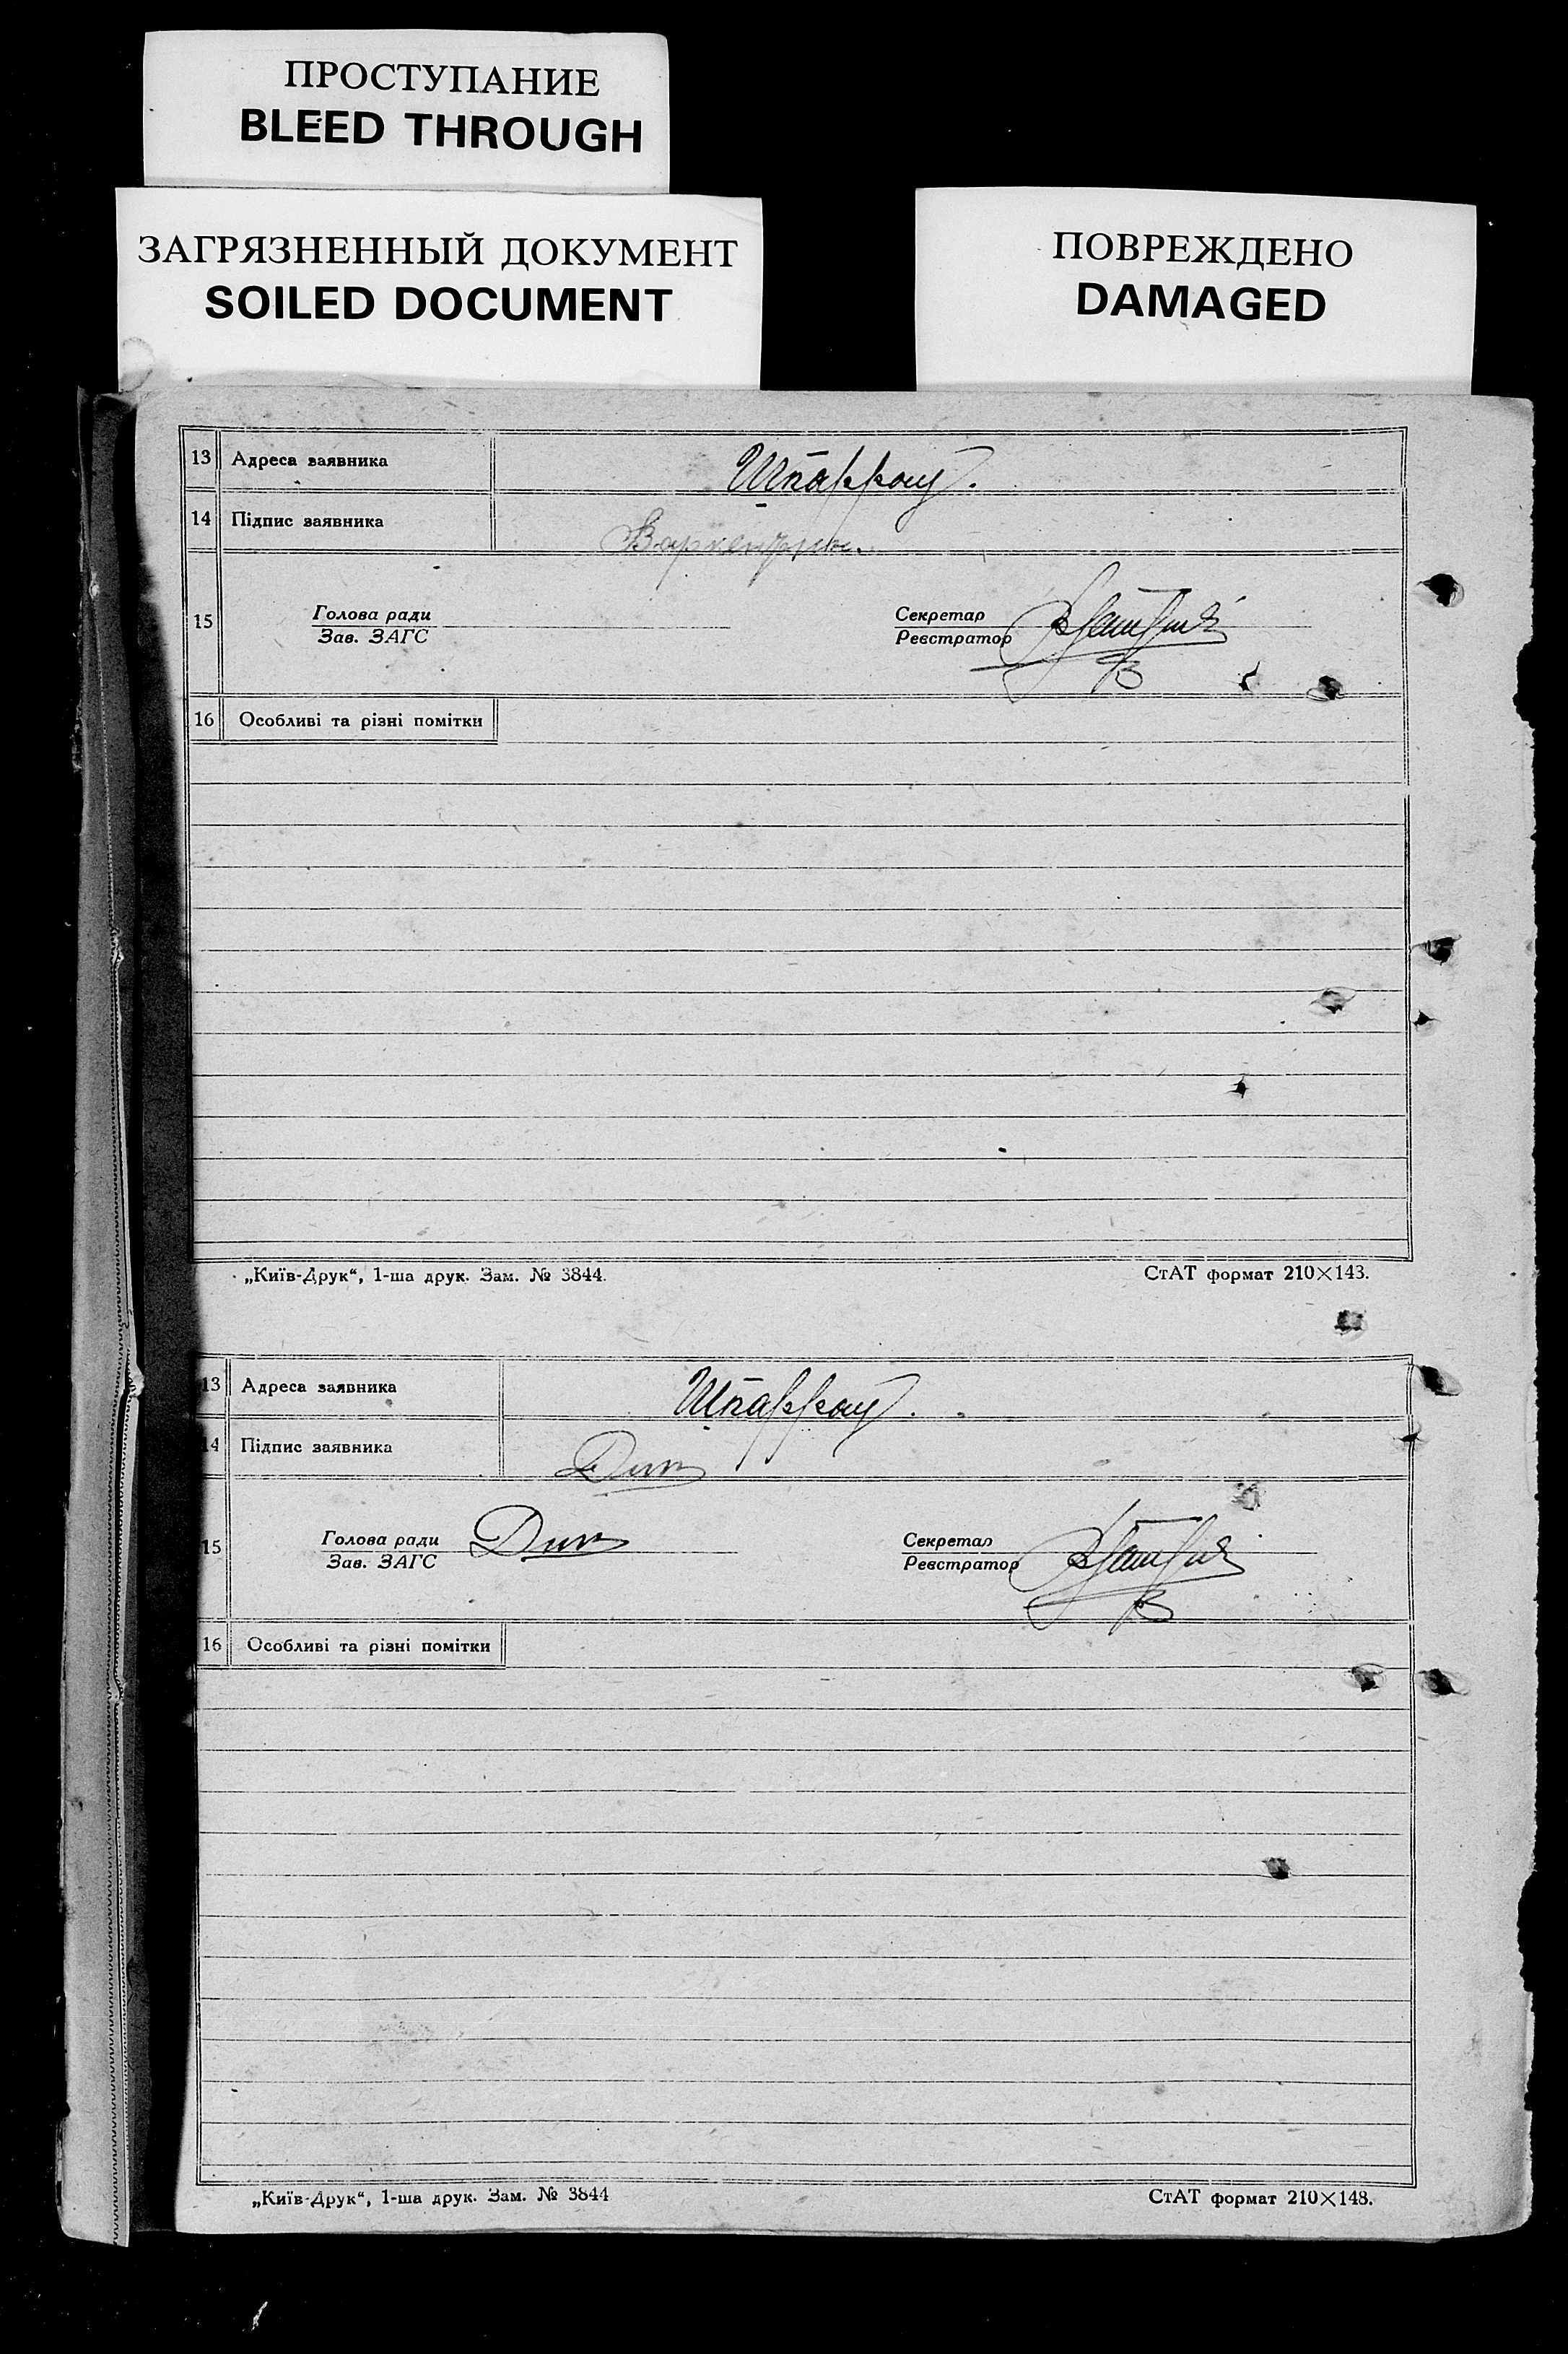 ПРОСТУПАНИЕ
BLEED THROUGH
ЗАГРЯЗНЕННЫЙ ДОКУМЕНТ
SOILED DOCUMENT
ПОВРЕЖДЕНО
DAMAGED
13 Адреса заявника Шпаррау.
14 Підпис заявника
15 Голова ради
Зав. ЗАГС
Секретар
Реєстратор
16 Особливі та різні помітки
„Київ-Друк“, 1-ша друк. Зам. № 3844. СтАТ формат 210×143.
13 Адреса заявника Шпаррау.
14 Підпис заявника Дик
15 Голова ради Дик
Зав. ЗАГС
Секретар
Реєстратор
16 Особливі та різні помітки
„Київ-Друк“, 1-ша друк. Зам. № 3844 СтАТ формат 210×148.